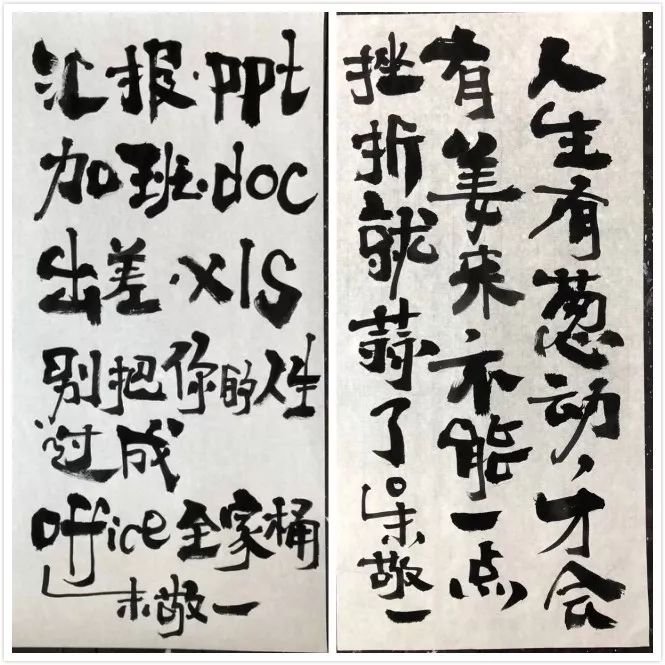 汇报·ppt
加班·doc
出差·xls
别把你的人生
过成
office全家桶
朱敬一
人生有葱动，才会
有姜来，不能一点
挫折就蒜了。朱敬一